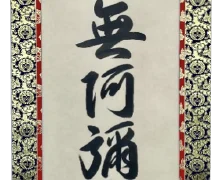 無阿彌